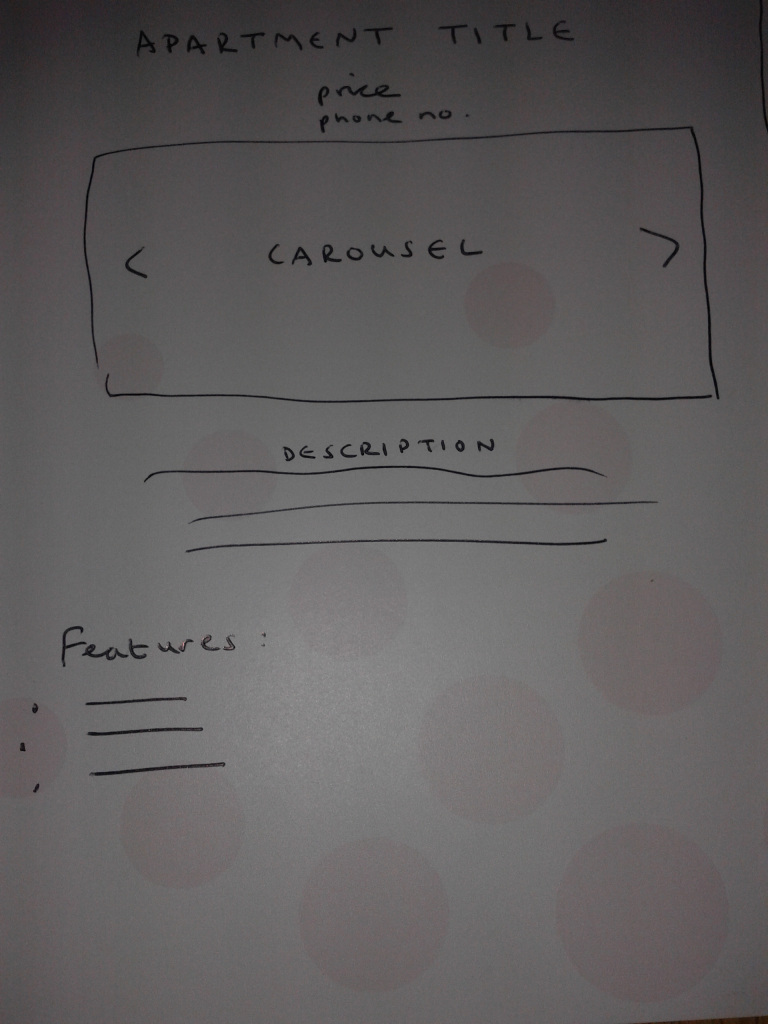 APARTMENT TITLE
price
phone no.
< CAROUSEL >
DESCRIPTION
Features: